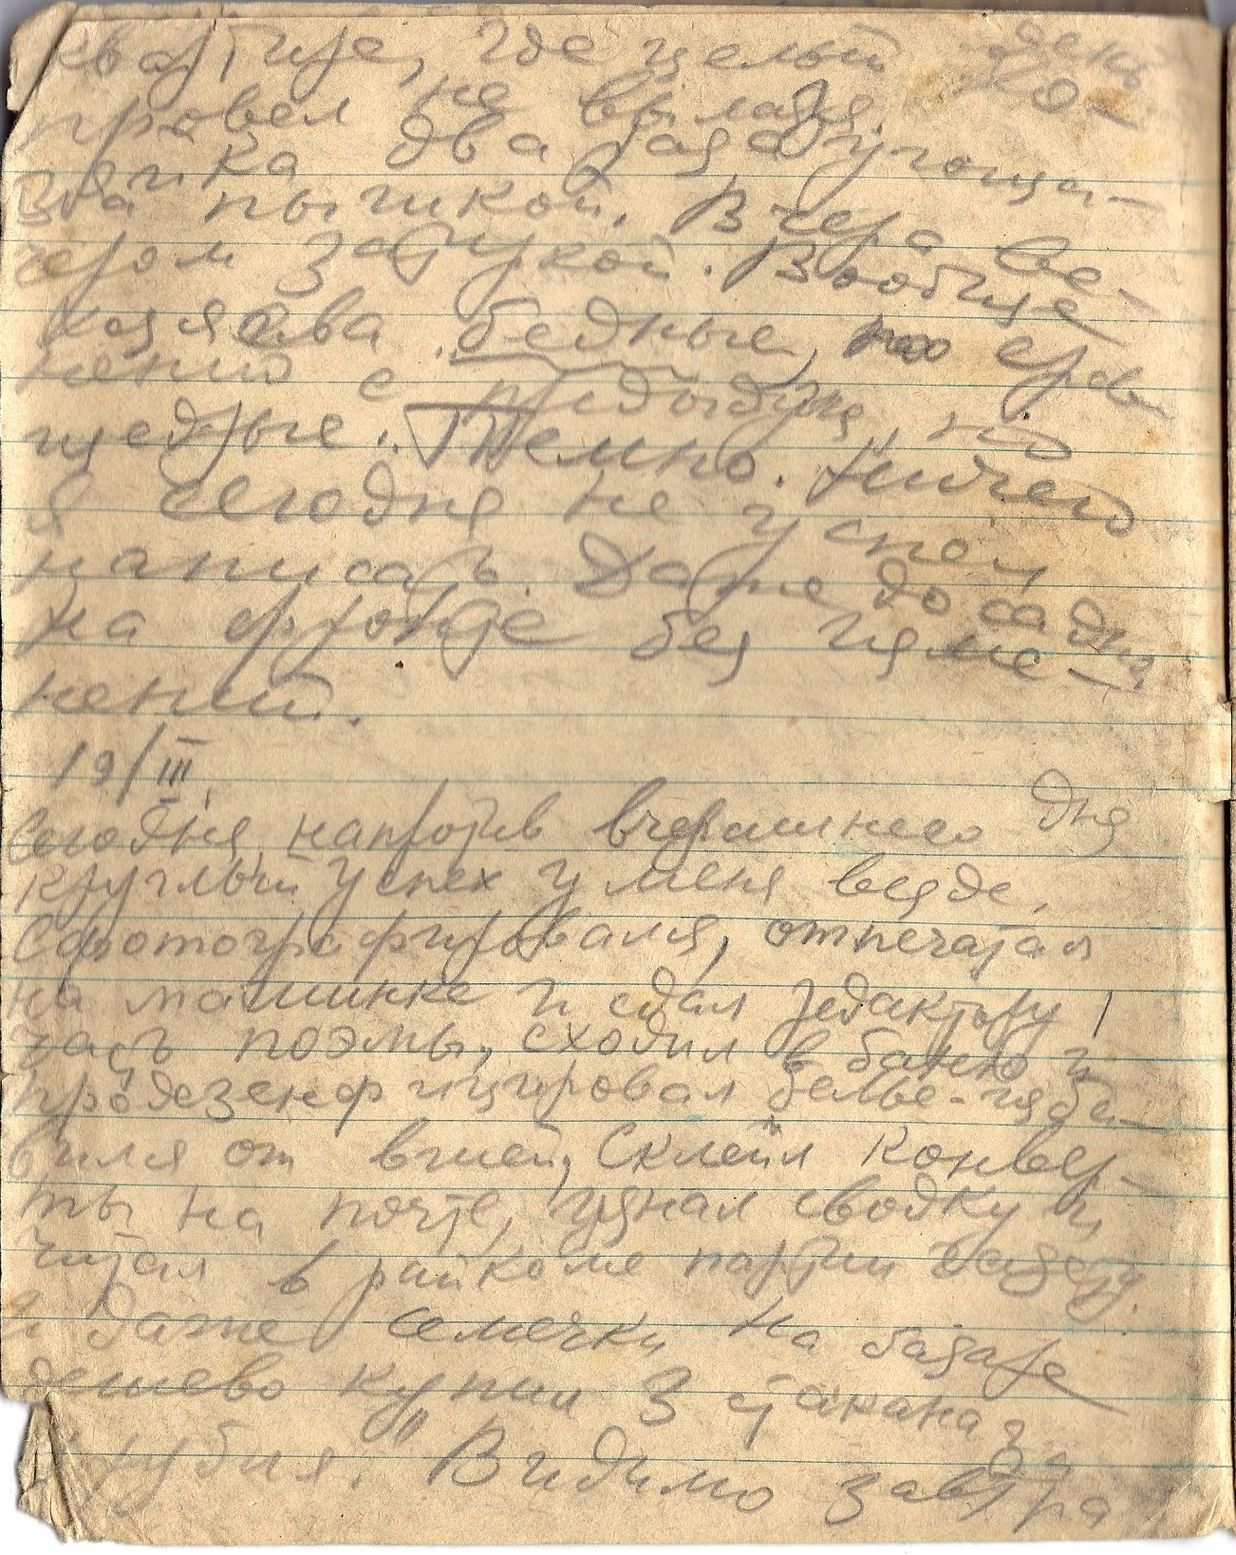 квартире, где целый день
провел не вылазя. Хо-
зяйка два раза угоща-
ла пышкой. Вчера ве-
чером затиркой. Вообще
хозяева бедные, по срав
нению с предыдущ, но
щедрые. Темно. Ничего
я сегодня не успел
написать. Даже досадно.
На фронте без изме-
нений.
19/III.
Сегодня, напротив вчерашнего дня
круглый успех у меня везде.
Сфотографировался, отпечатал
на машинке и сдал редактору
часть поэмы, сходил в баню и
продезенфицировал белье - изба-
вился от вшей, Склеил конвер-
ты на почте, узнал сводку и
читал в райкоме партии газету.
и даже семечки на базаре
дешево купил 3 стакана за
рубля. Видимо завтра